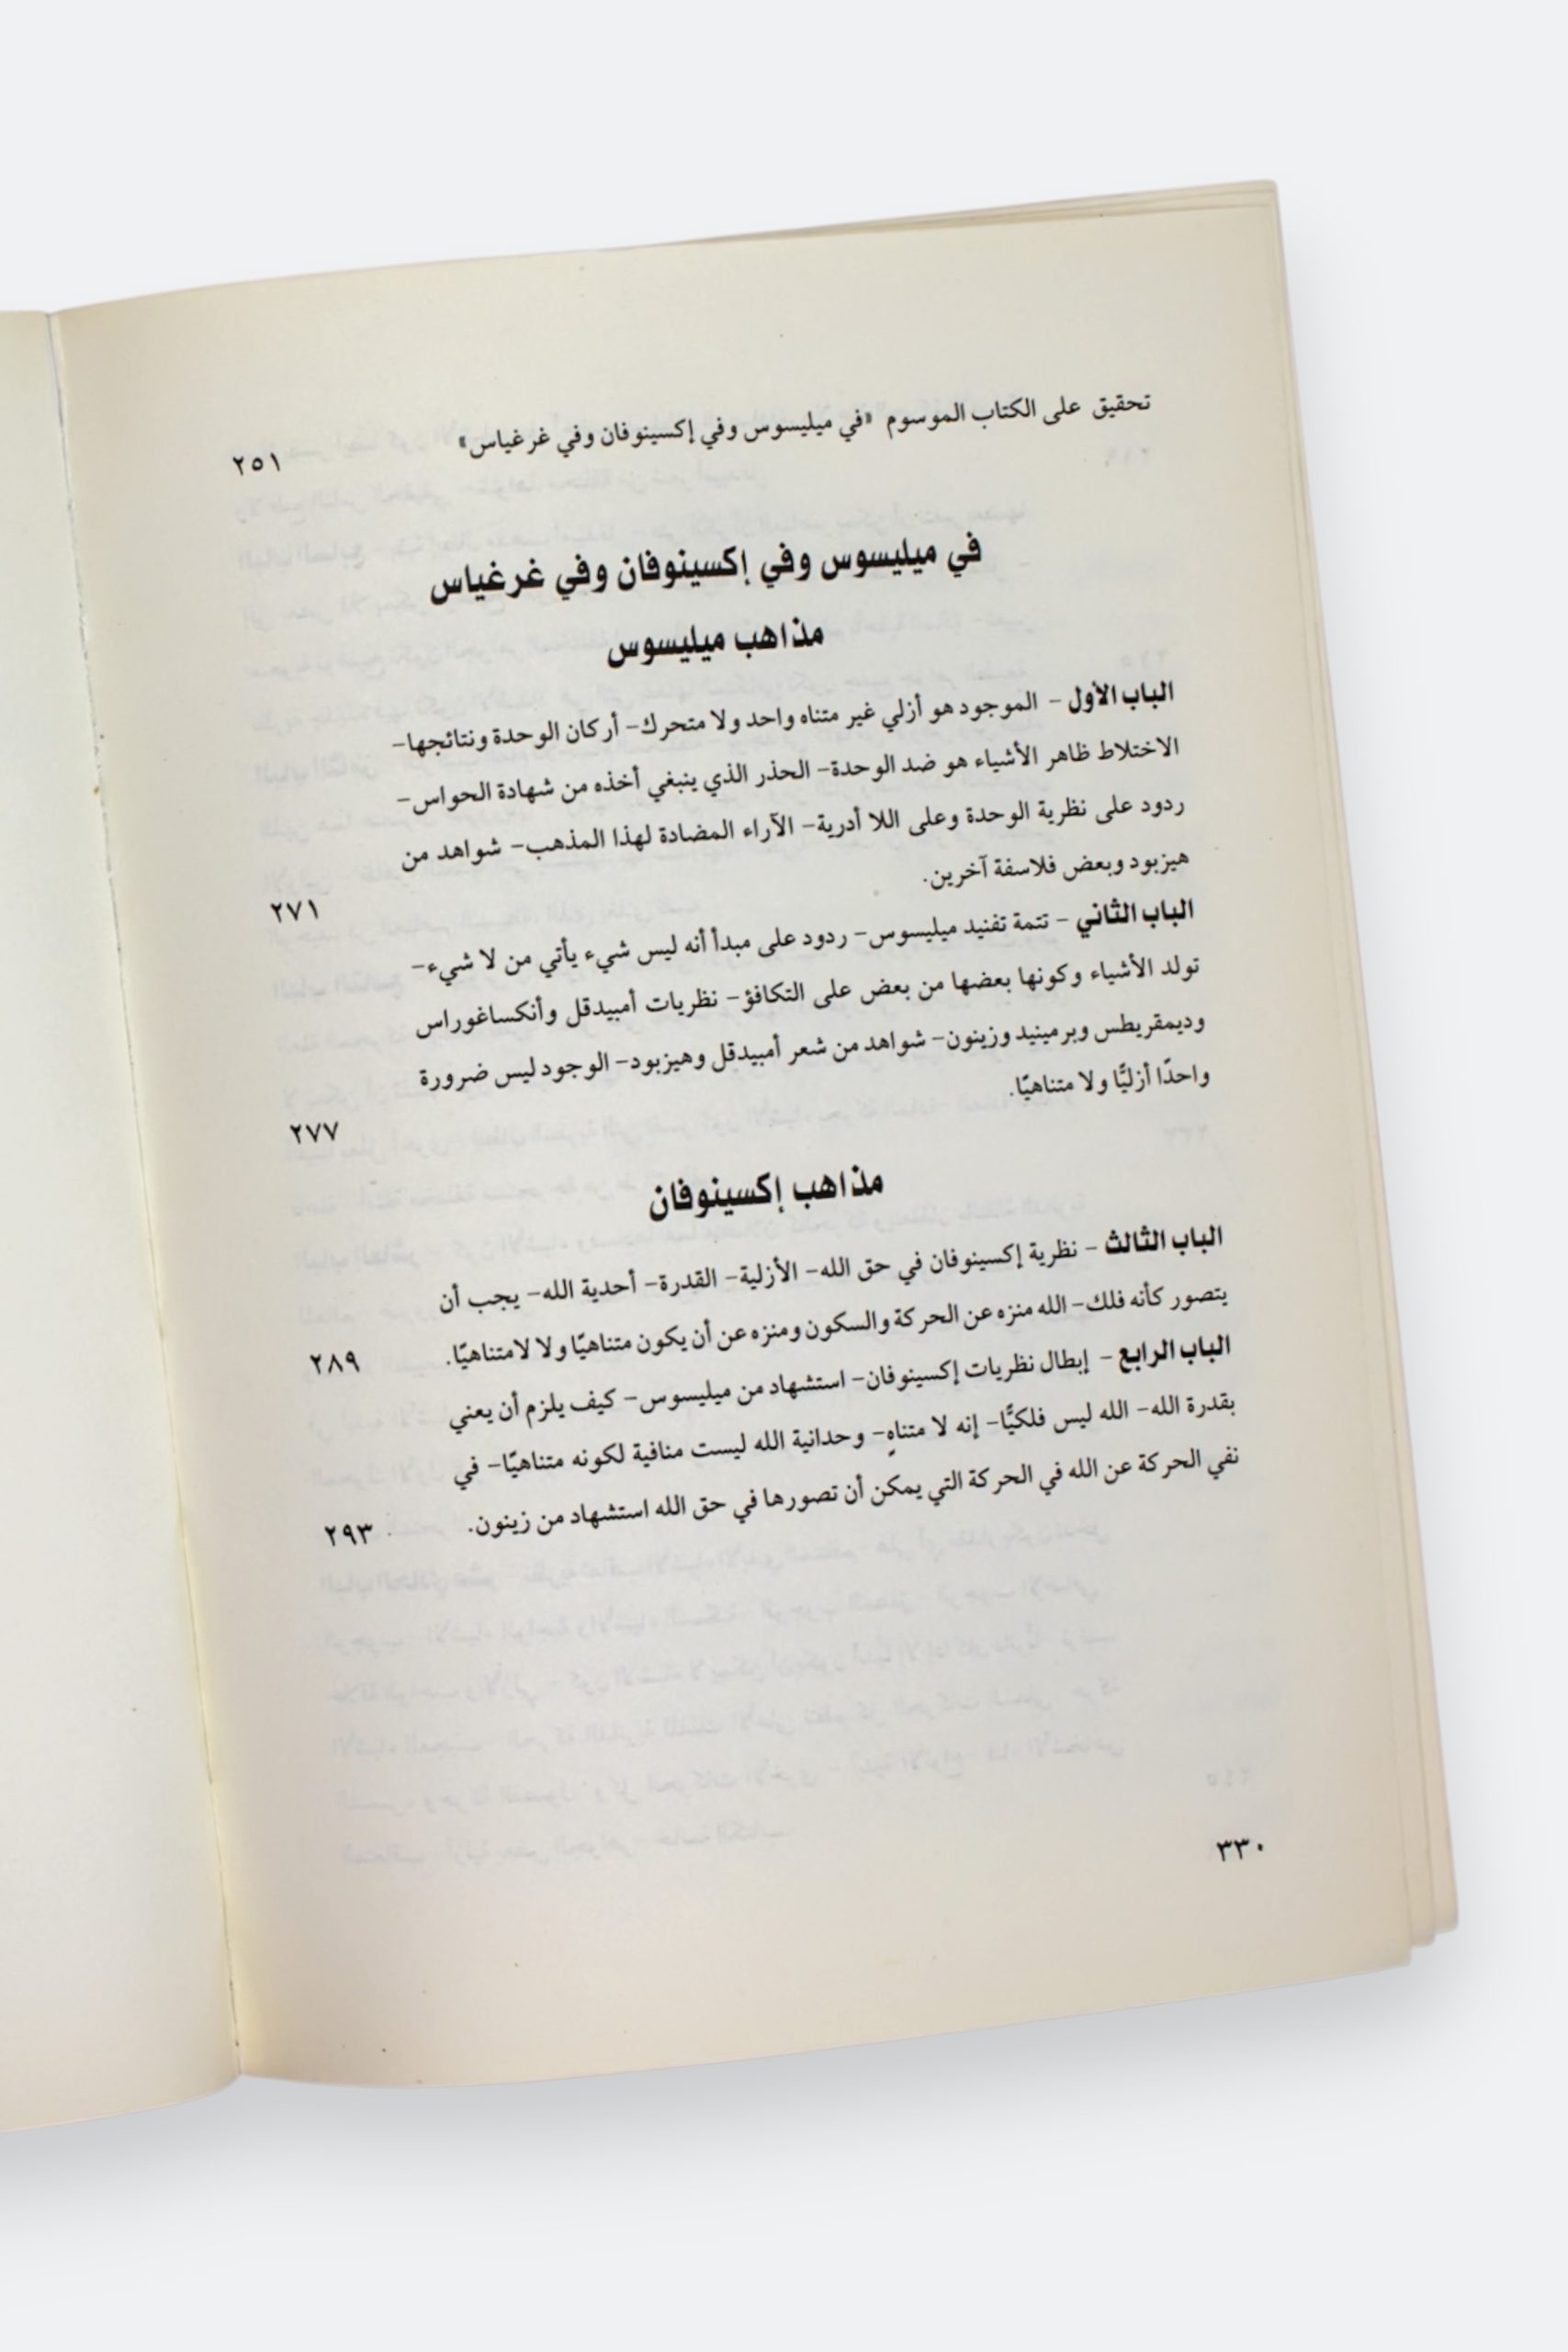 تحقيق على الكتاب الموسوم «في ميليسوس وفي إكسينوفان وفي غرغياس» ٢٥١
في ميليسوس وفي إكسينوفان وفي غرغياس
مذاهب ميليسوس
الباب الأول – الموجود هو أزلي غير متناه واحد ولا متحرك– أركان الوحدة ونتائجها–
الاختلاط ظاهر الأشياء هو ضد الوحدة– الحذر الذي ينبغي أخذه من شهادة الحواس–
ردود على نظرية الوحدة وعلى اللا أدرية– الآراء المضادة لهذا المذهب– شواهد من
هيزبود وبعض فلاسفة آخرين. ٢٧١
الباب الثاني – تتمة تفنيد ميليسوس– ردود على مبدأ أنه ليس شيء يأتي من لا شيء–
تولد الأشياء وكونها بعضها من بعض على التكافؤ– نظريات أمبيدقل وأنكساغوراس
وديمقريطس وبرمينيد وزينون– شواهد من شعر أمبيدقل وهيزبود– الوجود ليس ضرورة
واحدًا أزليًّا ولا متناهيًا. ٢٧٧
مذاهب إكسينوفان
الباب الثالث – نظرية إكسينوفان في حق الله– الأزلية– القدرة– أحدية الله– يجب أن
يتصور كأنه فلك– الله منزه عن الحركة والسكون ومنزه عن أن يكون متناهيًا ولا لامتناهيًا. ٢٨٩
الباب الرابع – إبطال نظريات إكسينوفان– استشهاد من ميليسوس– كيف يلزم أن يعني
بقدرة الله– الله ليس فلكيًّا– إنه لا متناهٍ– وحدانية الله ليست منافية لكونه متناهيًا– في
نفي الحركة عن الله في الحركة التي يمكن أن تصورها في حق الله استشهاد من زينون. ٢٩٣
٣٣٠